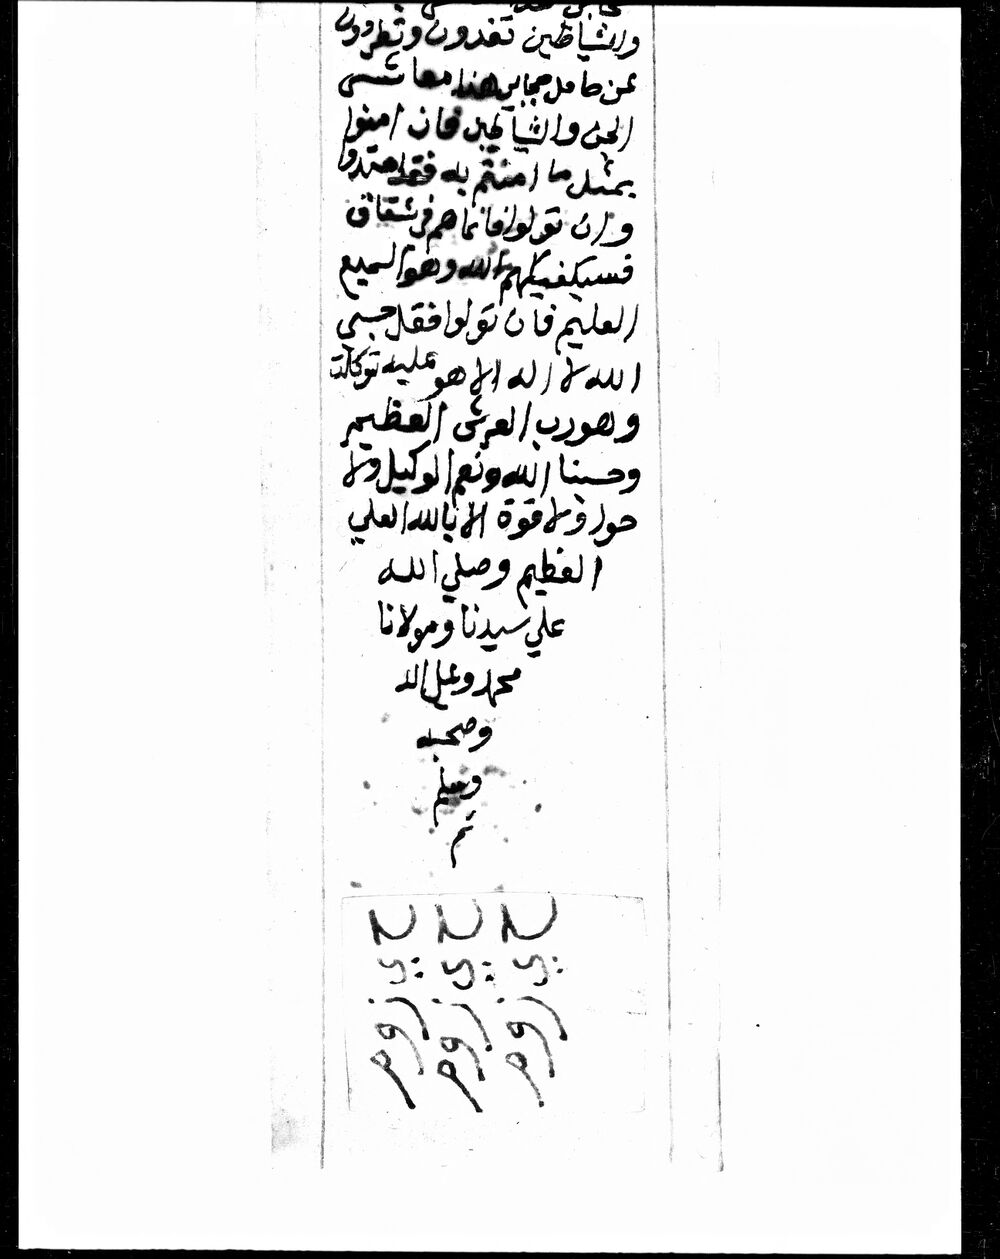 والشياطين تغدون وتطردون
عن حامل حجابي هذا معاشى
الجن والشياطين فان امنوا
بمثل ما امنتم به فقد اهتدوا
وان تولوا فانما هم في شقاق
فسيكفيكهم الله وهو السميع
العليم فان تولوا فقل حسبي
الله لا اله الا هو عليه توكلت
وهو رب العرش العظيم
وحسبنا الله ونعم الوكيل ولا
حول ولا قوة الا بالله العلي
العظيم وصلي الله
علي سيدنا ومولانا
محمد وعلي اله
وصحبه
وسلم
تم